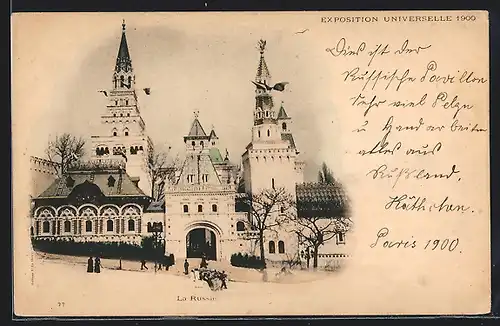 EXPOSITION UNIVERSELLE 1900
Dies ist der
Russische Pavillon
Sehr viel Pelze
u Handarbeiten
alles aus
Rußland.
Paris 1900.
77
La Russie